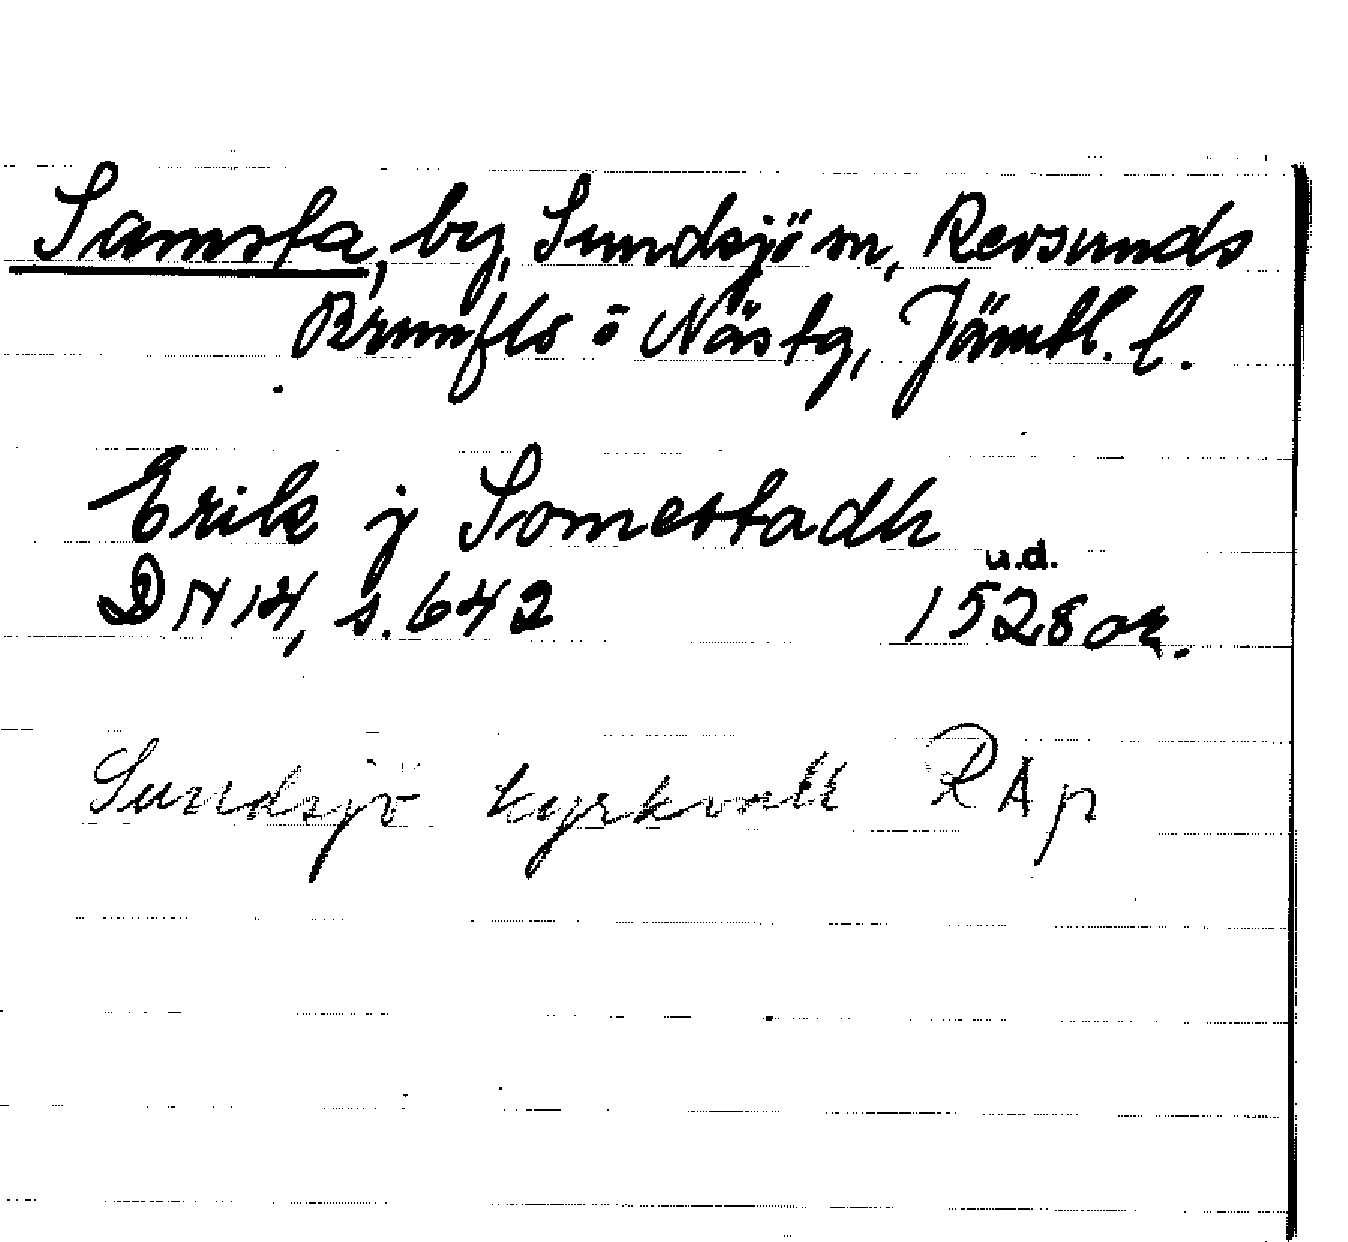 Samsta, by, Sundsjö sn, Revsunds
Brunflo o Näs tg, Jämtl. l.
Erik j Somestadh
u.d.
DN 14, s. 642 1528 or.
Sundsjö kyrkvall RAp